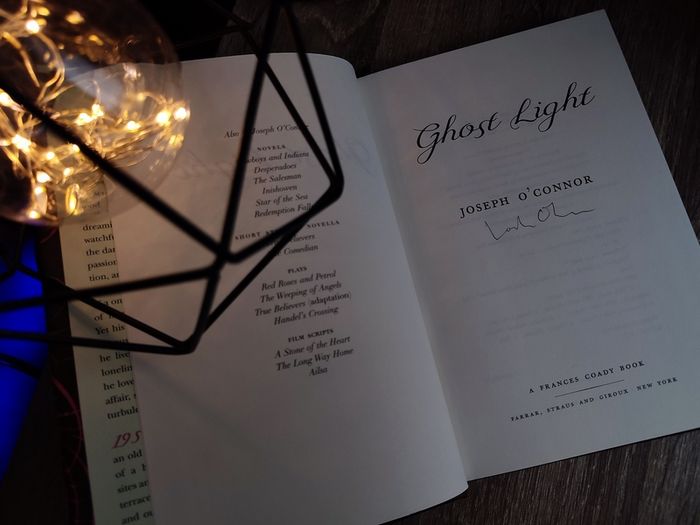 dreami
watchf
the dar
passior
tion, ar
on
of
Yet his
he live
lonelin
he love
affair,
turbule
195
an old
of a
sites ar
terrace
and ou
Also Joseph O'Con
NOVELS
owboys and Indians
Desperadoes
The Salesman
Inishowen
Star of the Sea
Redemption Fall
SHORT NOVELLA
ievers
Comedian
PLAYS
Red Roses and Petrol
The Weeping of Angels
True Believers (adaptation)
Handel's Crossing
FILM SCRIPTS
A Stone of the Heart
The Long Way Home
Ailsa
Ghost Light
JOSEPH O'CONNOR
A FRANCES COADY BOOK
FARRAR, STRAUS AND GIROUX NEW YORK